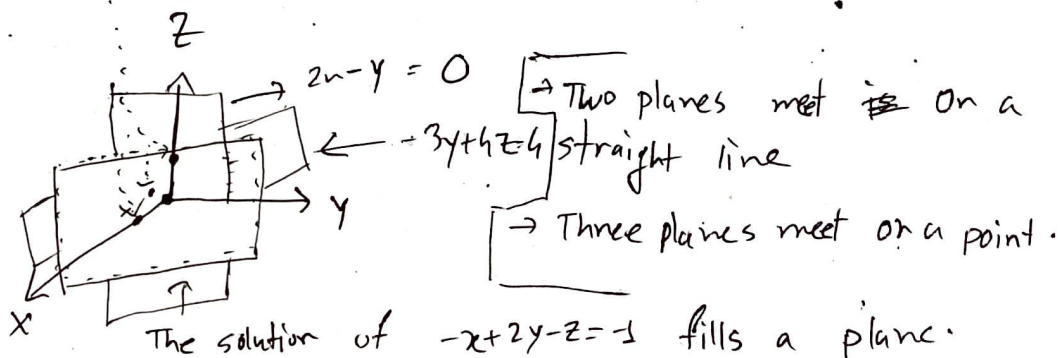 Z
2x-y = 0
-3y+4z=4
→ Two planes meet on a
straight line
→ Three planes meet on a point.
Y
X
The solution of -x+2y-z=-1 fills a plane.